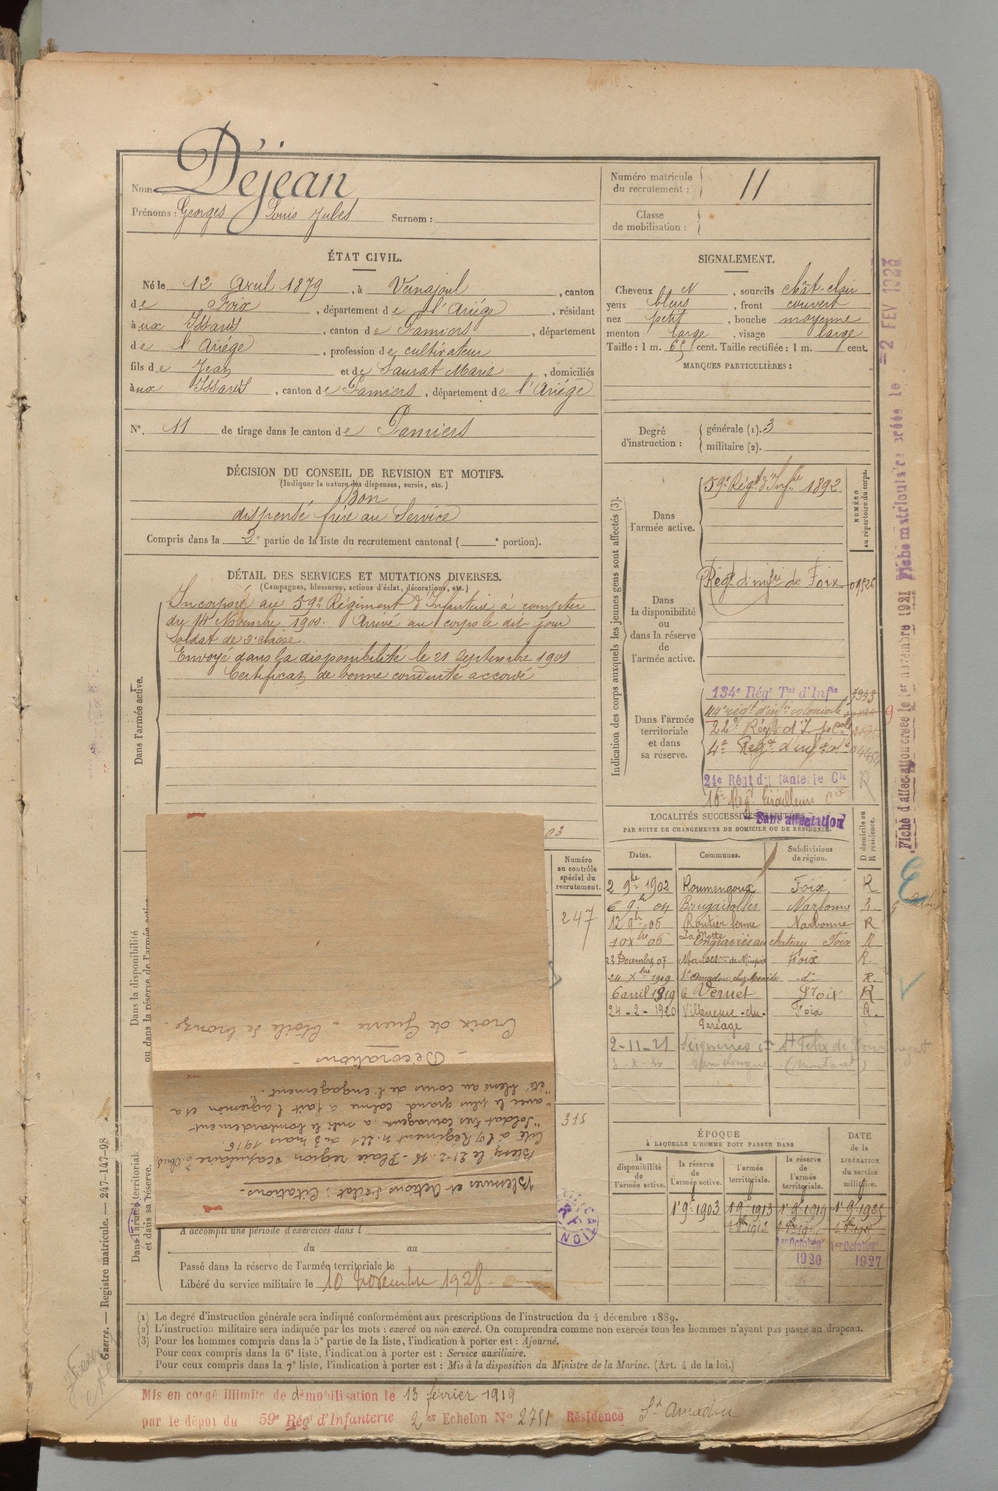 Nom Déjean
Prénoms : Georges Louis Jules Surnom :
Numéro matricule du recrutement : 11
Classe de mobilisation :
ÉTAT CIVIL.
Né le 12 Avril 1879, à canton
de Foix, département de l'Ariège, résidant
aux Issards, canton de Pamiers, département
de l'Ariège, profession de cultivateur
fils de Jean et de Saurat Marie, domiciliés
aux Issards, canton de Pamiers, département de l'Ariège
N°. 11 de tirage dans le canton de Pamiers
SIGNALEMENT.
Cheveux N, sourcils chât. clair
yeux bleus, front couvert
nez petit, bouche moyenne
menton large, visage large
Taille : 1 m. 65 cent. Taille rectifiée : 1 m. cent.
MARQUES PARTICULIÈRES :
Degré d'instruction : générale (1). 3
militaire (2).
DÉCISION DU CONSEIL DE REVISION ET MOTIFS.
(Indiquer la nature des dispenses, sursis, etc.)
Bon
dispensé frère au Service
Compris dans la 2e partie de la liste du recrutement cantonal ( e portion).
DÉTAIL DES SERVICES ET MUTATIONS DIVERSES.
(Campagnes, blessures, actions d'éclat, décorations, etc.)
Dans l'armée active.
Incorporé au 59e Régiment d'Infanterie à compter
du 14 Novembre 1900. Arrivé au corps le dit jour
Soldat de 2e classe.
Envoyé dans la disponibilité le 21 Septembre 1901
Certificat de bonne conduite accordé
Indication des corps auxquels les jeunes gens sont affectés (3).
NUMÉRO au répertoire du corps.
Dans l'armée active.
59e Régt d'Infie 1892
Dans la disponibilité ou dans la réserve de l'armée active.
Régt d'infie de Foix 01526
Dans l'armée territoriale et dans sa réserve.
134e Régt Tal d'Infie
22e Régt d'I
4e Régt d'inf
21e Régt d'Infanterie Cle
16e Régt Tirailleurs
Sans affectation
LOCALITÉS SUCCESSIVES HABITÉES
PAR SUITE DE CHANGEMENTS DE DOMICILE OU DE RÉSIDENCE.
Dates. Communes. Subdivisions de région. D domicile ou R résidence.
2 9bre 1902 Roumengoux Foix R
6 9bre 04 Brugairolles Narbonne R
12 9bre 05 Routier Narbonne R
10 xbre 06 Foix R
23 Décembre 07 Foix R
24 xbre 1909 St Amadou d° R.
6 avril 1919 le Vernet Foix R
24-2-1920 Villeneuve-du-Paréage Foix R.
2-11-21
Numéro au contrôle spécial du recrutement.
247
315
Dans la disponibilité ou dans la réserve de l'armée active
Dans l'armée territoriale et dans sa réserve.
Blessures et Actions d'éclat : Citations.
Blessé le 21-2-16 Plaie région scapulaire
Cité à l'O Régiment n° 221 du 3 mars 1916
"Soldat très courageux a subi le bombardement
"avec le plus grand calme a fait l'agression et a
"été blessé au cours de l'engagement".
- Décorations -
Croix de Guerre - Étoile de bronze.
A accompli une période d'exercices dans l
du au
Passé dans la réserve de l'armée territoriale le
Libéré du service militaire le 10 novembre 1928
ÉPOQUE
À LAQUELLE L'HOMME DOIT PASSER DANS
DATE de la LIBÉRATION du service militaire.
la disponibilité de l'armée active. la réserve de l'armée active. l'armée territoriale. la réserve de l'armée territoriale.
1er 9bre 1903 1er 9bre 1913 1er 9bre 1919 1er 9bre 1925
1er Octobre 1920 1er Octobre 1927
(1) Le degré d'instruction générale sera indiqué conformément aux prescriptions de l'instruction du 4 décembre 1889.
(2) L'instruction militaire sera indiquée par les mots : exercé ou non exercé. On comprendra comme non exercés tous les hommes n'ayant pas passé au drapeau.
(3) Pour les hommes compris dans la 5e partie de la liste, l'indication à porter est : Ajourné.
Pour ceux compris dans la 6e liste, l'indication à porter est : Service auxiliaire.
Pour ceux compris dans la 7e liste, l'indication à porter est : Mis à la disposition du Ministre de la Marine. (Art. 4 de la loi.)
Guerre. — Registre matricule. — 247-147-98
Mis en congé illimité de démobilisation le 13 février 1919
par le dépôt du 59e Régt d'Infanterie 2e Echelon N° 2751 Résidence St Amadou
Fiche d'affectation créée le 1er novembre 1921 Fiche matriculaire créée le 2 FEV 1923